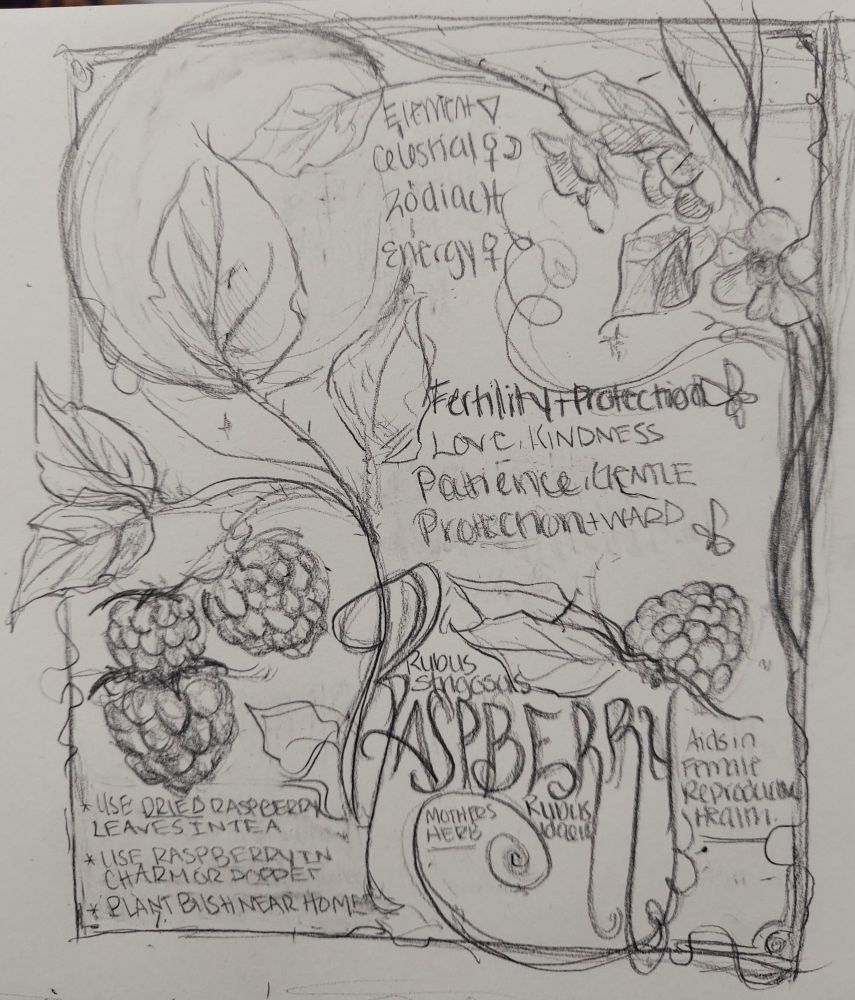 Element ▽
Celestial ♀ ☽
Zodiac ♄
Energy ♀
Fertility + Protection
LOVE, KINDNESS
Patience, GENTLE
Protection + WARD
Rubus
strigosus
RASPBERRY
MOTHERS
HERB
Rubus
idaeus
Aids in
Female
Reproductive
Health.
* USE DRIED RASPBERRY
LEAVES IN TEA
* USE RASPBERRY IN
CHARM OR POPPET
* PLANT BUSH NEAR HOME